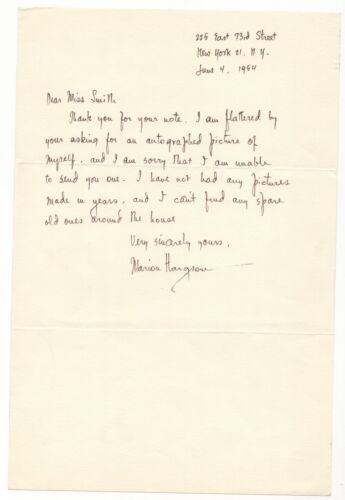 225 East 73rd Street
New York 21, N.Y.
June 4, 1954
Dear Miss Smith,
Thank you for your note. I am flattered by
your asking for an autographed picture of
myself, and I am sorry that I am unable
to send you one. I have not had any pictures
made in years, and I can't find any spare
old ones around the house
Very sincerely yours,
Marion Hargrove